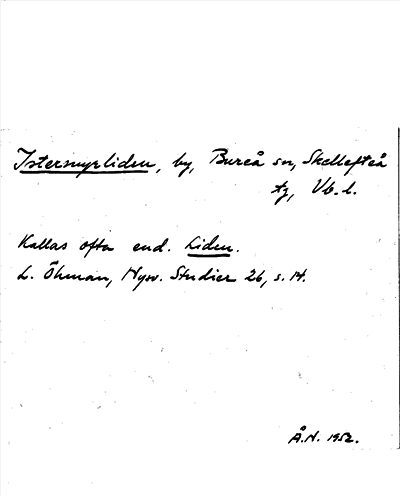 Istermyrliden, by, Bureå sn, Skellefteå
tg, Vb. l.
Kallas ofta end. Liden.
L. Öhman, Nysv. Studier 26, s. 14.
Å.N. 1952.